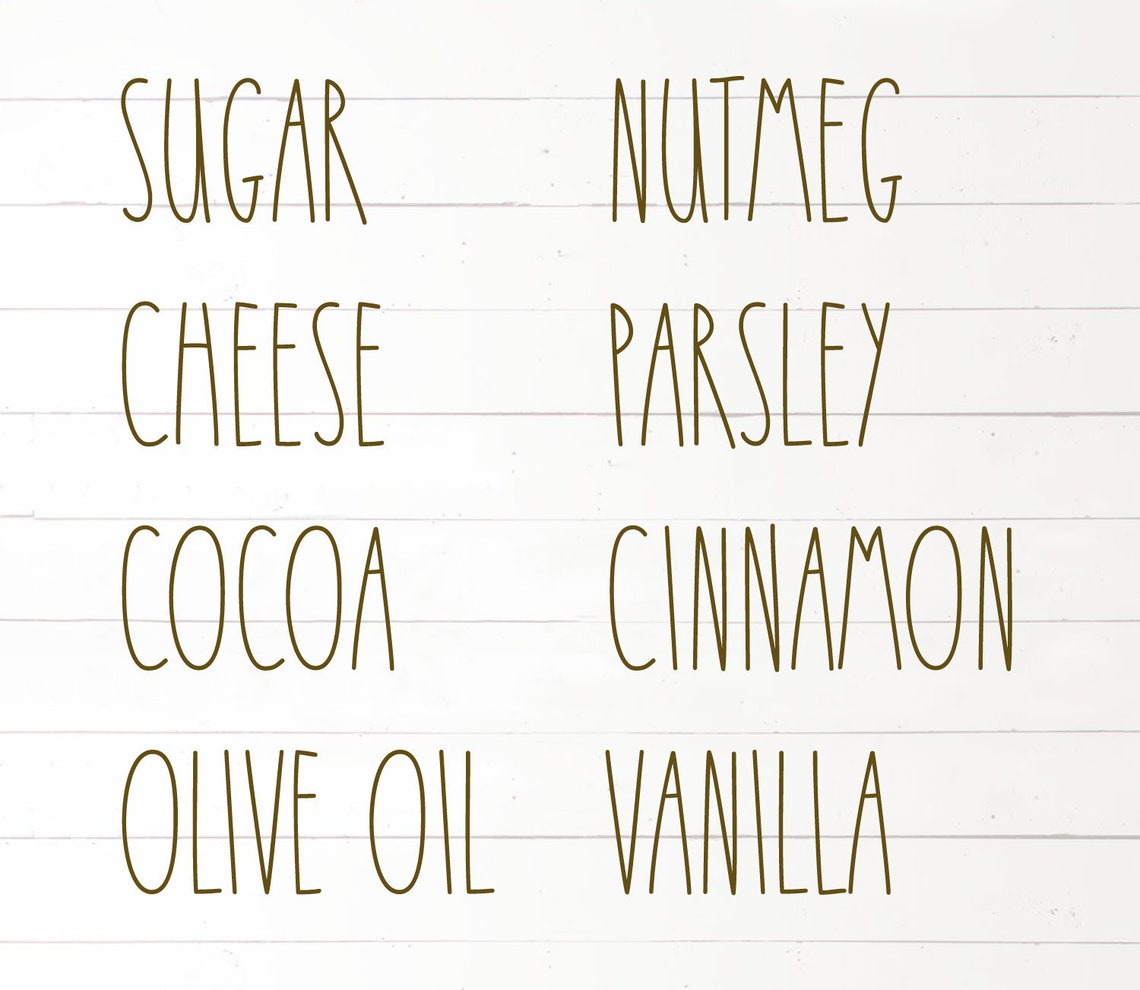 SUGAR
CHEESE
COCOA
OLIVE OIL
NUTMEG
PARSLEY
CINNAMON
VANILLA